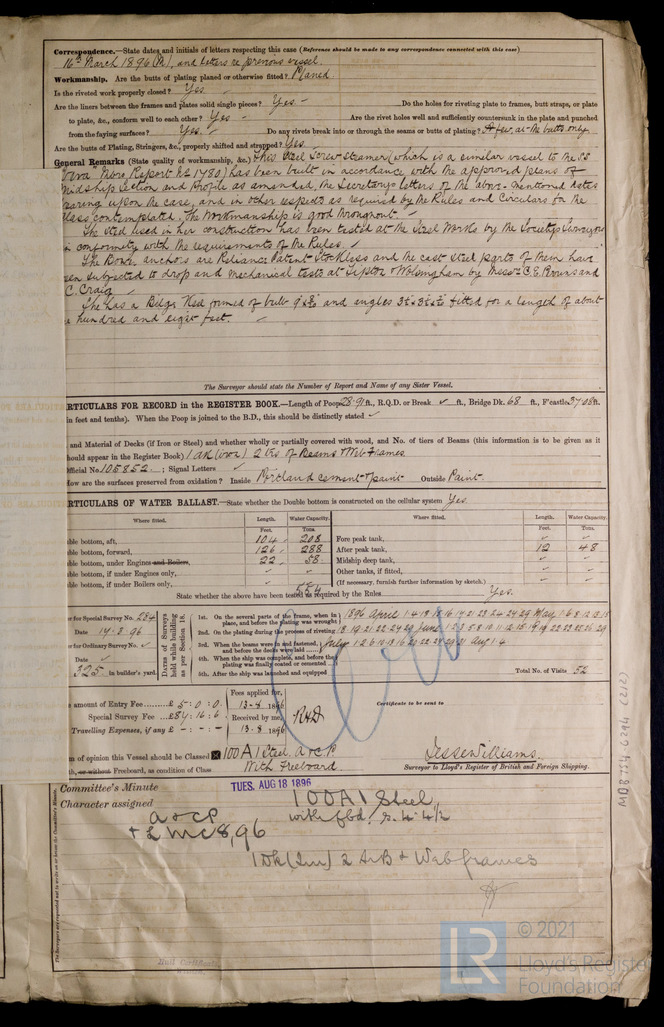 Correspondence.—State dates and initials of letters respecting this case (Reference should be made to any correspondence connected with this case)
16th March 1896 (M), and letters re previous vessel.
Workmanship. Are the butts of plating planed or otherwise fitted? Planed
Is the riveted work properly closed? Yes.
Are the liners between the frames and plates solid single pieces? Yes. Do the holes for riveting plate to frames, butt straps, or plate
to plate, &c., conform well to each other? Yes Are the rivet holes well and sufficiently countersunk in the plate and punched
from the faying surfaces? Yes. Do any rivets break into or through the seams or butts of plating? A few, at the butts only.
Are the butts of Plating, Stringers, &c., properly shifted and strapped? Yes
General Remarks (State quality of workmanship, &c.) This Steel Screw Steamer (which is a similar vessel to the SS
More Report No 1780) has been built in accordance with the approved plans of
Midship Section and Profile as amended, the Secretary's letters of the above-mentioned dates
bearing upon the case, and in other respects as required by the Rules and Circulars for the
Class contemplated. The workmanship is good throughout.
The steel used in her construction has been tested at the Steel Works by the Society's Surveyors
in conformity with the requirements of the Rules.
The Bower anchors are Reliance Patent Stockless and the cast steel parts of them have
been subjected to drop and mechanical tests at Tipton & Wolsingham by Messrs C.E. and
C. Craig
She has a Bilge Keel formed of bulb and angles fitted for a length of about
a hundred and eight feet.
The Surveyor should state the Number of Report and Name of any Sister Vessel.
ARTICULARS FOR RECORD in the REGISTER BOOK.—Length of Poop 28.91 ft., R.Q.D. or Break ✓ ft., Bridge Dk. 68 ft., F'castle 37.08 ft.
in feet and tenths). When the Poop is joined to the B.D., this should be distinctly stated ✓
and Material of Decks (if Iron or Steel) and whether wholly or partially covered with wood, and No. of tiers of Beams (this information is to be given as it
should appear in the Register Book) 1 dk (iron) 2 trs of Beams & Web Frames
Official No. 105852. ; Signal Letters
How are the surfaces preserved from oxidation? Inside Portland cement & paint Outside Paint.
ARTICULARS OF WATER BALLAST.—State whether the Double bottom is constructed on the cellular system Yes
Where fitted. Length. Water Capacity. Where fitted. Length. Water Capacity.
Feet. Tons. Feet. Tons.
ble bottom, aft, 104 208 Fore peak tank,
ble bottom, forward, 126 288 After peak tank, 12 48
ble bottom, under Engines and Boilers, 22 58 Midship deep tank,
ble bottom, if under Engines only, Other tanks, if fitted,
ble bottom, if under Boilers only, 554 (If necessary, furnish further information by sketch.)
State whether the above have been tested as required by the Rules Yes.
for Special Survey No. 284
Date 14.3.96
for Ordinary Survey No. ✓
Date ✓
325 in builder's yard.
Dates of Surveys held while building as per Section 18.
1st. On the several parts of the frame, when in place, and before the plating was wrought 1896 April 1.4.13.15.16.14.21.23.24.29 May 1.6.8.12.13.15
2nd. On the plating during the process of riveting 18.19.21.22.24.29 June 1.2.3.5.8.10.11.12.15
3rd. When the beams were in and fastened, and before the decks were laid July 1.2.6.10.13.16 Aug 1.4
4th. When the ship was complete, and before the plating was finally coated or cemented
5th. After the ship was launched and equipped Total No. of Visits 52
amount of Entry Fee £ 5 : 0 : 0 Fees applied for, 13.8.1896
Special Survey Fee £84 : 16 : 6 Received by me,
Travelling Expenses, if any £ - : - : - 13.8.1896
Certificate to be sent to
m of opinion this Vessel should be Classed 100A1 Steel. A&CP.
th, or without Freeboard, as condition of Class With Freeboard
Jesse Williams.
Surveyor to Lloyd's Register of British and Foreign Shipping.
Committee's Minute TUES. AUG 18 1896
Character assigned 100A1 Steel
A & CP with fbd.
+ LMC 8,96
1 Dk (Irn) 2 trB & Web frames
The Surveyors are requested not to write on or below the Committee's Minute.
Hull Certificate
© 2021
LR
Lloyd's Register
Foundation